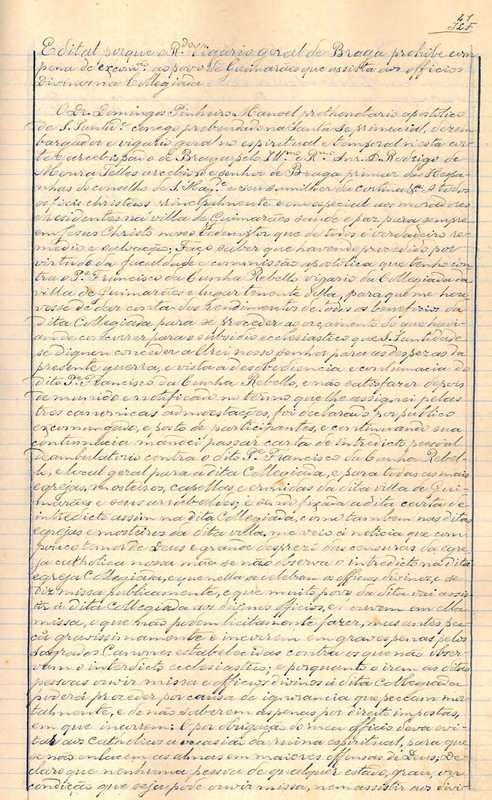 41
Edital porque o R.do Sr. Vigario geral de Braga prohibe com
pena de excom. ao povo de Guimarães que assista aos officios
Divinos na Collegiada
O Dr. Domingos Pinheiro Manoel prothonotario apostolico
de S. Santid.e conego prebendado na Santa Sé primacial, dezem
bargador e vigario geral no espiritual e temporal n'esta côr
te e arcebispado de Braga pelo Ill.mo e R.mo Snr. D. Rodrigo de
Moura Telles arcebispo e senhor de Braga primaz das Hespa
nhas do conselho de S. Mag.e e seu sumilher da cortina &c. A todos
os fieis christãos principalmente e em especial aos moradores
e residentes na villa de Guimarães saude e paz para sempre
em Jesus Christo nosso Redemptor que de todos é verdadeiro re
medio e salvação; Faço saber que havendo procedido por
virtude da faculdade e commissão apostolica que tenho con
tra o P.e Francisco da Cunha Rebello vigario da Collegiada da
villa de Guimarães e lugar tenente della, para que me hou
vesse de dar conta dos rendimentos de todos os beneficios da
dita Collegiada para se proceder ao orçamento do que havi
am de concorrer para o subsidio ecclesiastico que S. Santidade
se dignou conceder a Elrei nosso senhor para as despezas da
presente guerra, e vista a desobediencia e contumacia do
dito P.e Francisco da Cunha Rebello, e não satisfazer depois
de munido e notificado no termo que lhe assignei pelas
tres canonicas admoestações, foi declarado por publico
excomungado, e posto de participantes, e continuando sua
contumacia mandei passar carta de interdicto pessoal
deambulatorio contra o dito P.e Francisco da Cunha Rebel
lo, e local geral para a dita Collegiada, e para todas as mais
egrejas, mosteiros, capellas, e ermidas da dita villa de Gui
marães e seus arrabaldes; e sendo fixada a dita carta de
interdicto assim na dita Collegiada, como tambem nas ditas
egrejas e mosteiros da dita villa, me veio á noticia que com
pouco temor de Deus e grande desprezo das censuras da egre
ja catholica nossa mãe se não observa o interdicto na dita
egreja Collegiada, e que nella se celebram os officios divinos, e se
diz missa publicamente, e que muito povo da dita vai assis
tir á dita Collegiada aos divinos officios, e ouvem em ella
missa, o que não podem licitamente fazer, mas antes pec
cã gravissimamente e incorrem em graves penas pelos
sagrados Canones estabelecidas contra os que não obser
vam o interdicto ecclesiastico; e porquanto o irem as ditas
pessoas ouvir missa e officios divinos á dita Collegiada
poderá proceder por causa de ignorancia que peccam mor
talmente, e de não saberem as penas por direito impostas,
em que incorrem: E por obrigação do meu officio deva evi
tar aos catholicos a occasião da ruina espiritual, para que
se não enlacem as almas em maiores offensas de Deus; De
claro que nenhuma pessoa de qualquer estado, grau, ou
condição que seja póde ouvir missa, nem assistir aos divi-